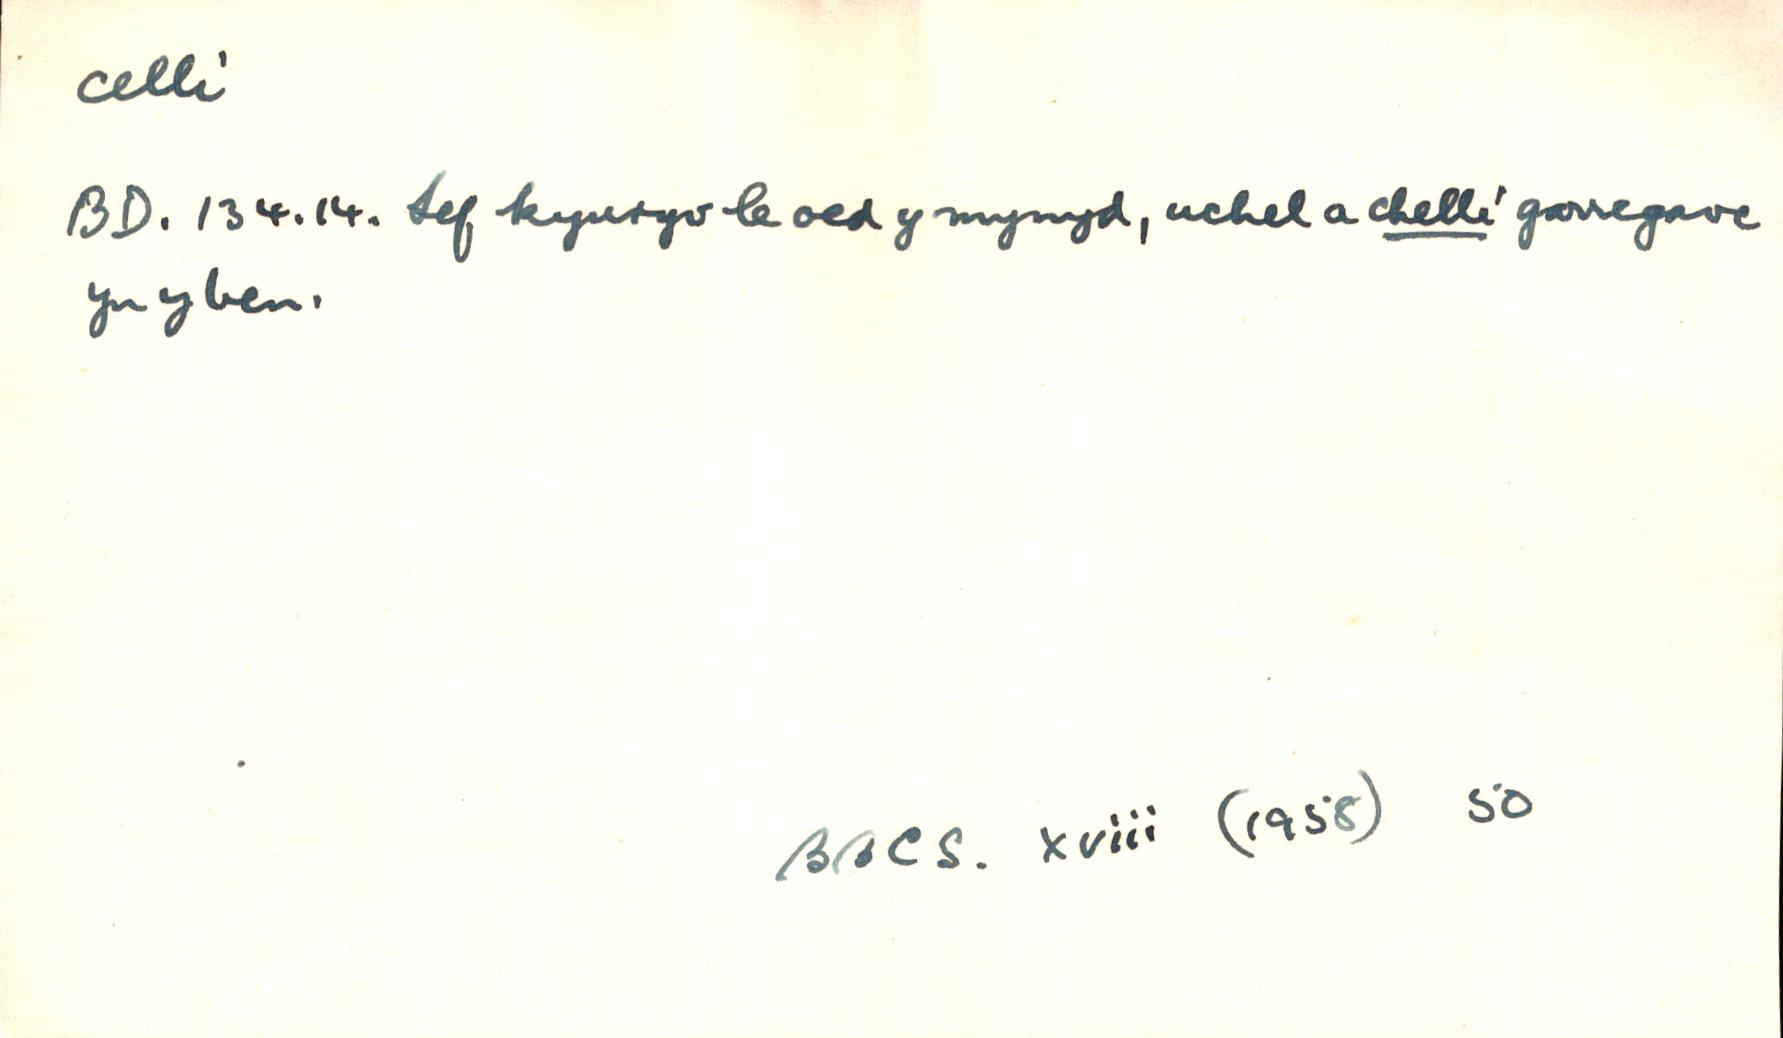 celli
BD. 134.14. Sef kyuryv le oed y mynyd, uchel a chelli garregavc
yn y ben.
BBCS. xviii (1958) 50